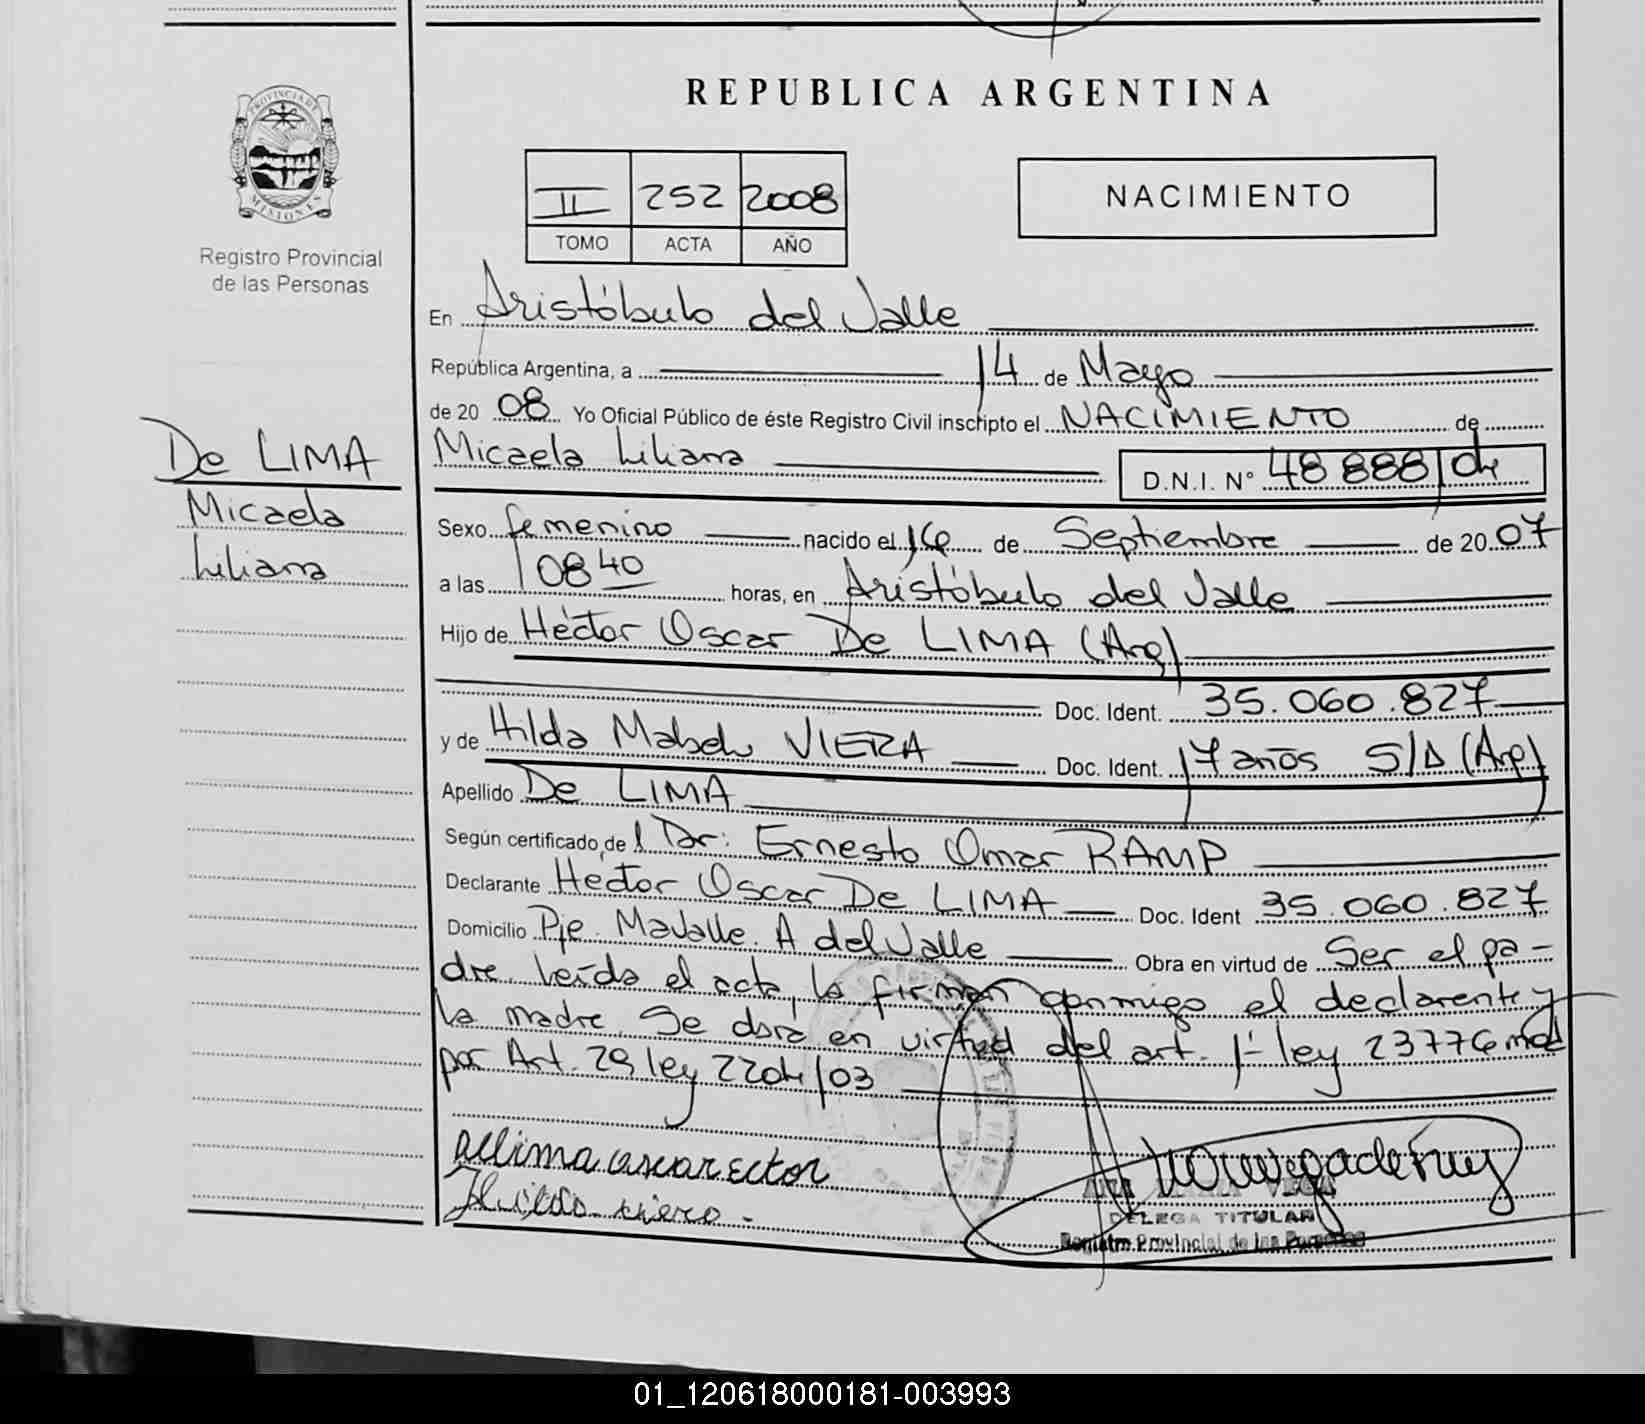 REPUBLICA ARGENTINA
PROVINCIA DE
MISIONES
Registro Provincial
de las Personas
II 252 2008
TOMO ACTA AÑO
NACIMIENTO
En Aristóbulo del Valle
República Argentina, a 14 de Mayo
de 20 08 Yo Oficial Público de éste Registro Civil inscripto el NACIMIENTO de
De LIMA
Micaela
Liliana
Micaela Liliana D.N.I. Nº 48 888
Sexo femenino nacido el de Septiembre de 20 07
a las 0840 horas, en Aristóbulo del Valle
Hijo de Héctor Oscar De LIMA (Arg)
Doc. Ident. 35.060.827
y de Hilda Mabel VIERA Doc. Ident. 17 años S/D (Arg)
Apellido De LIMA
Según certificado de l Dr: Ernesto Omar RAMP
Declarante Héctor Oscar De LIMA Doc. Ident 35.060.827
Domicilio Pje. Mavalle. A del Valle Obra en virtud de Ser el pa-
dre. Leída el acta, la firman conmigo el declarente y
la madre. Se en virtud del art. 1- ley 23776 mod
por Art. 29 ley 2204/03
Delima oscar ector
viera -
VEGA
DELEGA TITULAR
Registro Provincial de las Personas
01_120618000181-003993